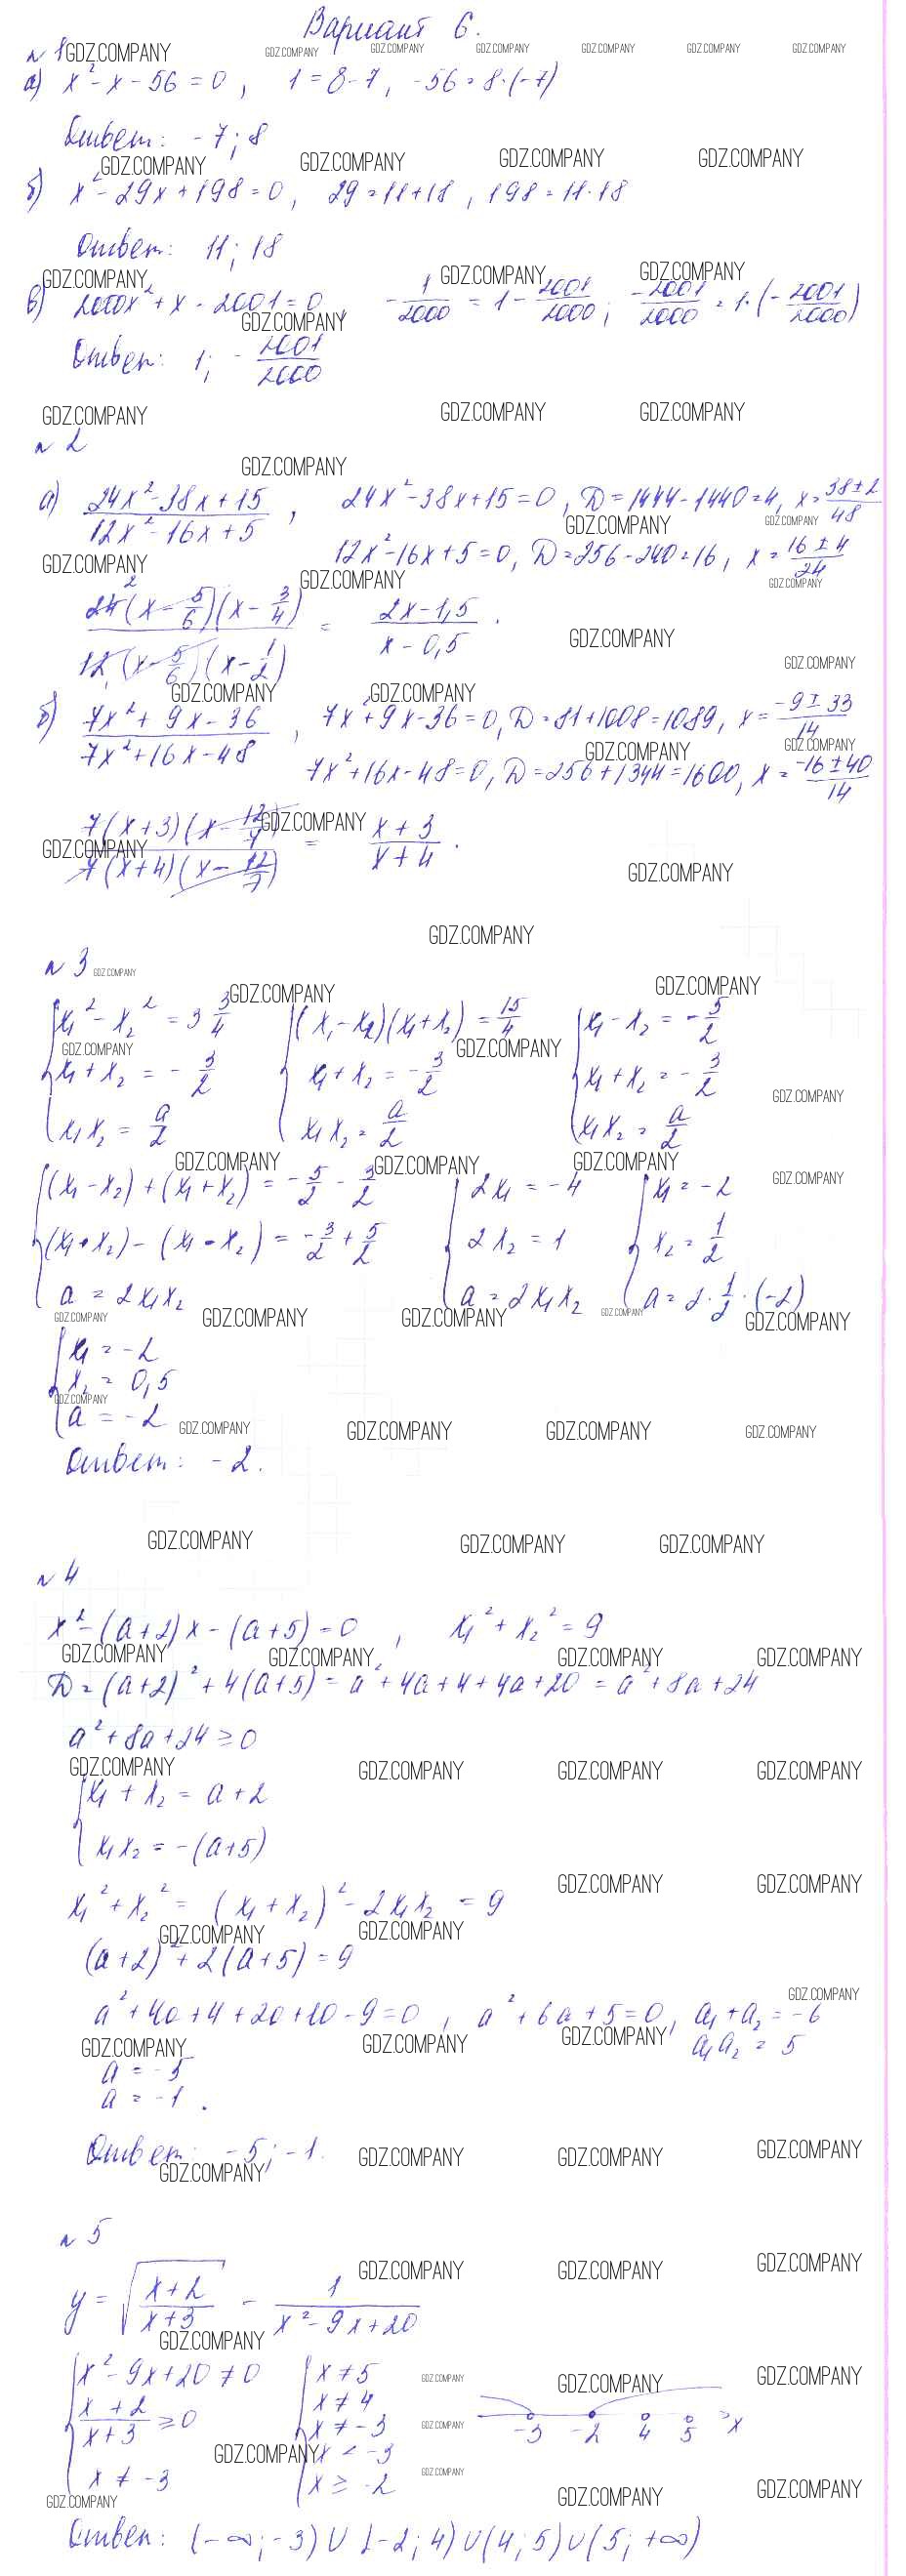 Вариант 6.
№ 1
а) x² - x - 56 = 0, 1 = 8 - 7, -56 = 8·(-7)
Ответ: -7; 8
б) x² - 29x + 198 = 0, 29 = 11 + 18, 198 = 11·18
Ответ: 11; 18
в) 2000x² + x - 2001 = 0, -1/2000 = 1 - 2001/2000; -2001/2000 = 1·(-2001/2000)
Ответ: 1; -2001/2000
№ 2
а) (24x² - 38x + 15)/(12x² - 16x + 5), 24x² - 38x + 15 = 0, D = 1444 - 1440 = 4, x = (38 ± 2)/48
12x² - 16x + 5 = 0, D = 256 - 240 = 16, x = (16 ± 4)/24
24(x - 5/6)(x - 3/4) / 12(x - 5/6)(x - 1/2) = (2x - 1,5)/(x - 0,5).
б) (7x² + 9x - 36)/(7x² + 16x - 48), 7x² + 9x - 36 = 0, D = 81 + 1008 = 1089, x = (-9 ± 33)/14
7x² + 16x - 48 = 0, D = 256 + 1344 = 1600, x = (-16 ± 40)/14
7(x + 3)(x - 12/7) / 7(x + 4)(x - 12/7) = (x + 3)/(x + 4).
№ 3
x₁² - x₂² = 3 3/4 (x₁ - x₂)(x₁ + x₂) = 15/4 x₁ - x₂ = -5/2
x₁ + x₂ = -3/2 x₁ + x₂ = -3/2 x₁ + x₂ = -3/2
x₁x₂ = a/2 x₁x₂ = a/2 x₁x₂ = a/2
(x₁ - x₂) + (x₁ + x₂) = -5/2 - 3/2 2x₁ = -4 x₁ = -2
(x₁ + x₂) - (x₁ - x₂) = -3/2 + 5/2 2x₂ = 1 x₂ = 1/2
a = 2x₁x₂ a = 2x₁x₂ a = 2·1/2·(-2)
x₁ = -2
x₂ = 0,5
a = -2
Ответ: -2.
№ 4
x² - (a+2)x - (a+5) = 0, x₁² + x₂² = 9
D = (a+2)² + 4(a+5) = a² + 4a + 4 + 4a + 20 = a² + 8a + 24
a² + 8a + 24 ≥ 0
x₁ + x₂ = a + 2
x₁x₂ = -(a+5)
x₁² + x₂² = (x₁ + x₂)² - 2x₁x₂ = 9
(a+2)² + 2(a+5) = 9
a² + 4a + 4 + 2a + 10 - 9 = 0, a² + 6a + 5 = 0, a₁ + a₂ = -6
a₁a₂ = 5
a = -5
a = -1.
Ответ: -5; -1.
№ 5
y = √((x+2)/(x+3)) - 1/(x² - 9x + 20)
x² - 9x + 20 ≠ 0 x ≠ 5
(x+2)/(x+3) ≥ 0 x ≠ 4
x ≠ -3 x ≠ -3
x < -3
x ≥ -2
-3 -2 4 5 x
Ответ: (-∞; -3) ∪ [-2; 4) ∪ (4; 5) ∪ (5; +∞)
GDZ.COMPANY